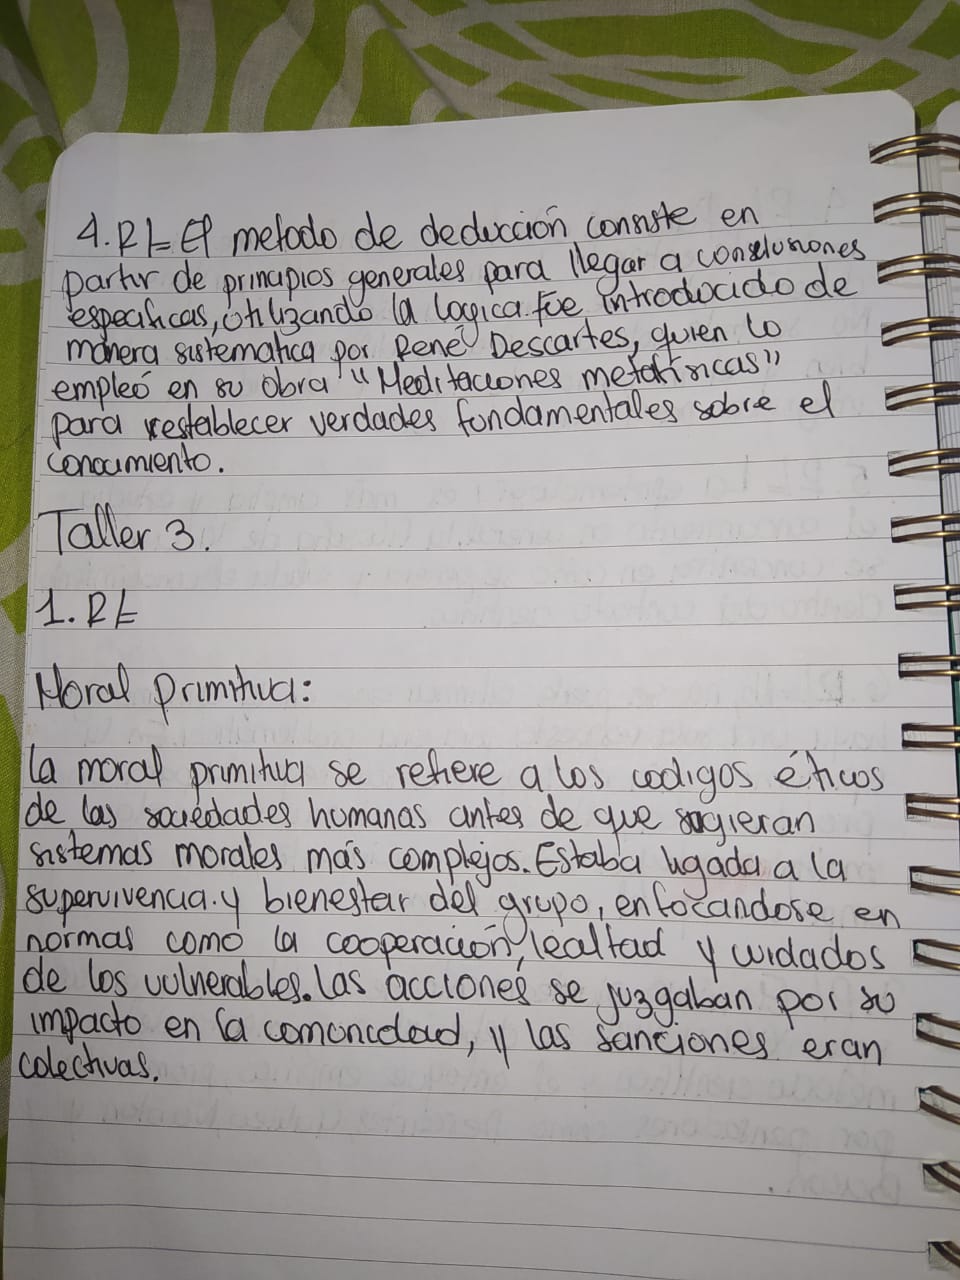 4. R/= El metodo de deducción consiste en
partir de principios generales para llegar a conclusiones
especificas, utilizando la logica. fue introducido de
manera sistematica por René Descartes, quien lo
empleó en su obra "Meditaciones metafisicas"
para restablecer verdades fundamentales sobre el
conocimiento.
Taller 3.
1. R/=
Moral primitiva:
la moral primitiva se refiere a los codigos éticos
de las sociedades humanas antes de que surgieran
sistemas morales más complejos. Estaba ligada a la
supervivencia. y bienestar del grupo, enfocandose en
normas como la cooperación, lealtad y cuidados
de los vulnerables. las acciones se juzgaban por su
impacto en la comunidad, y las sanciones eran
colectivas.